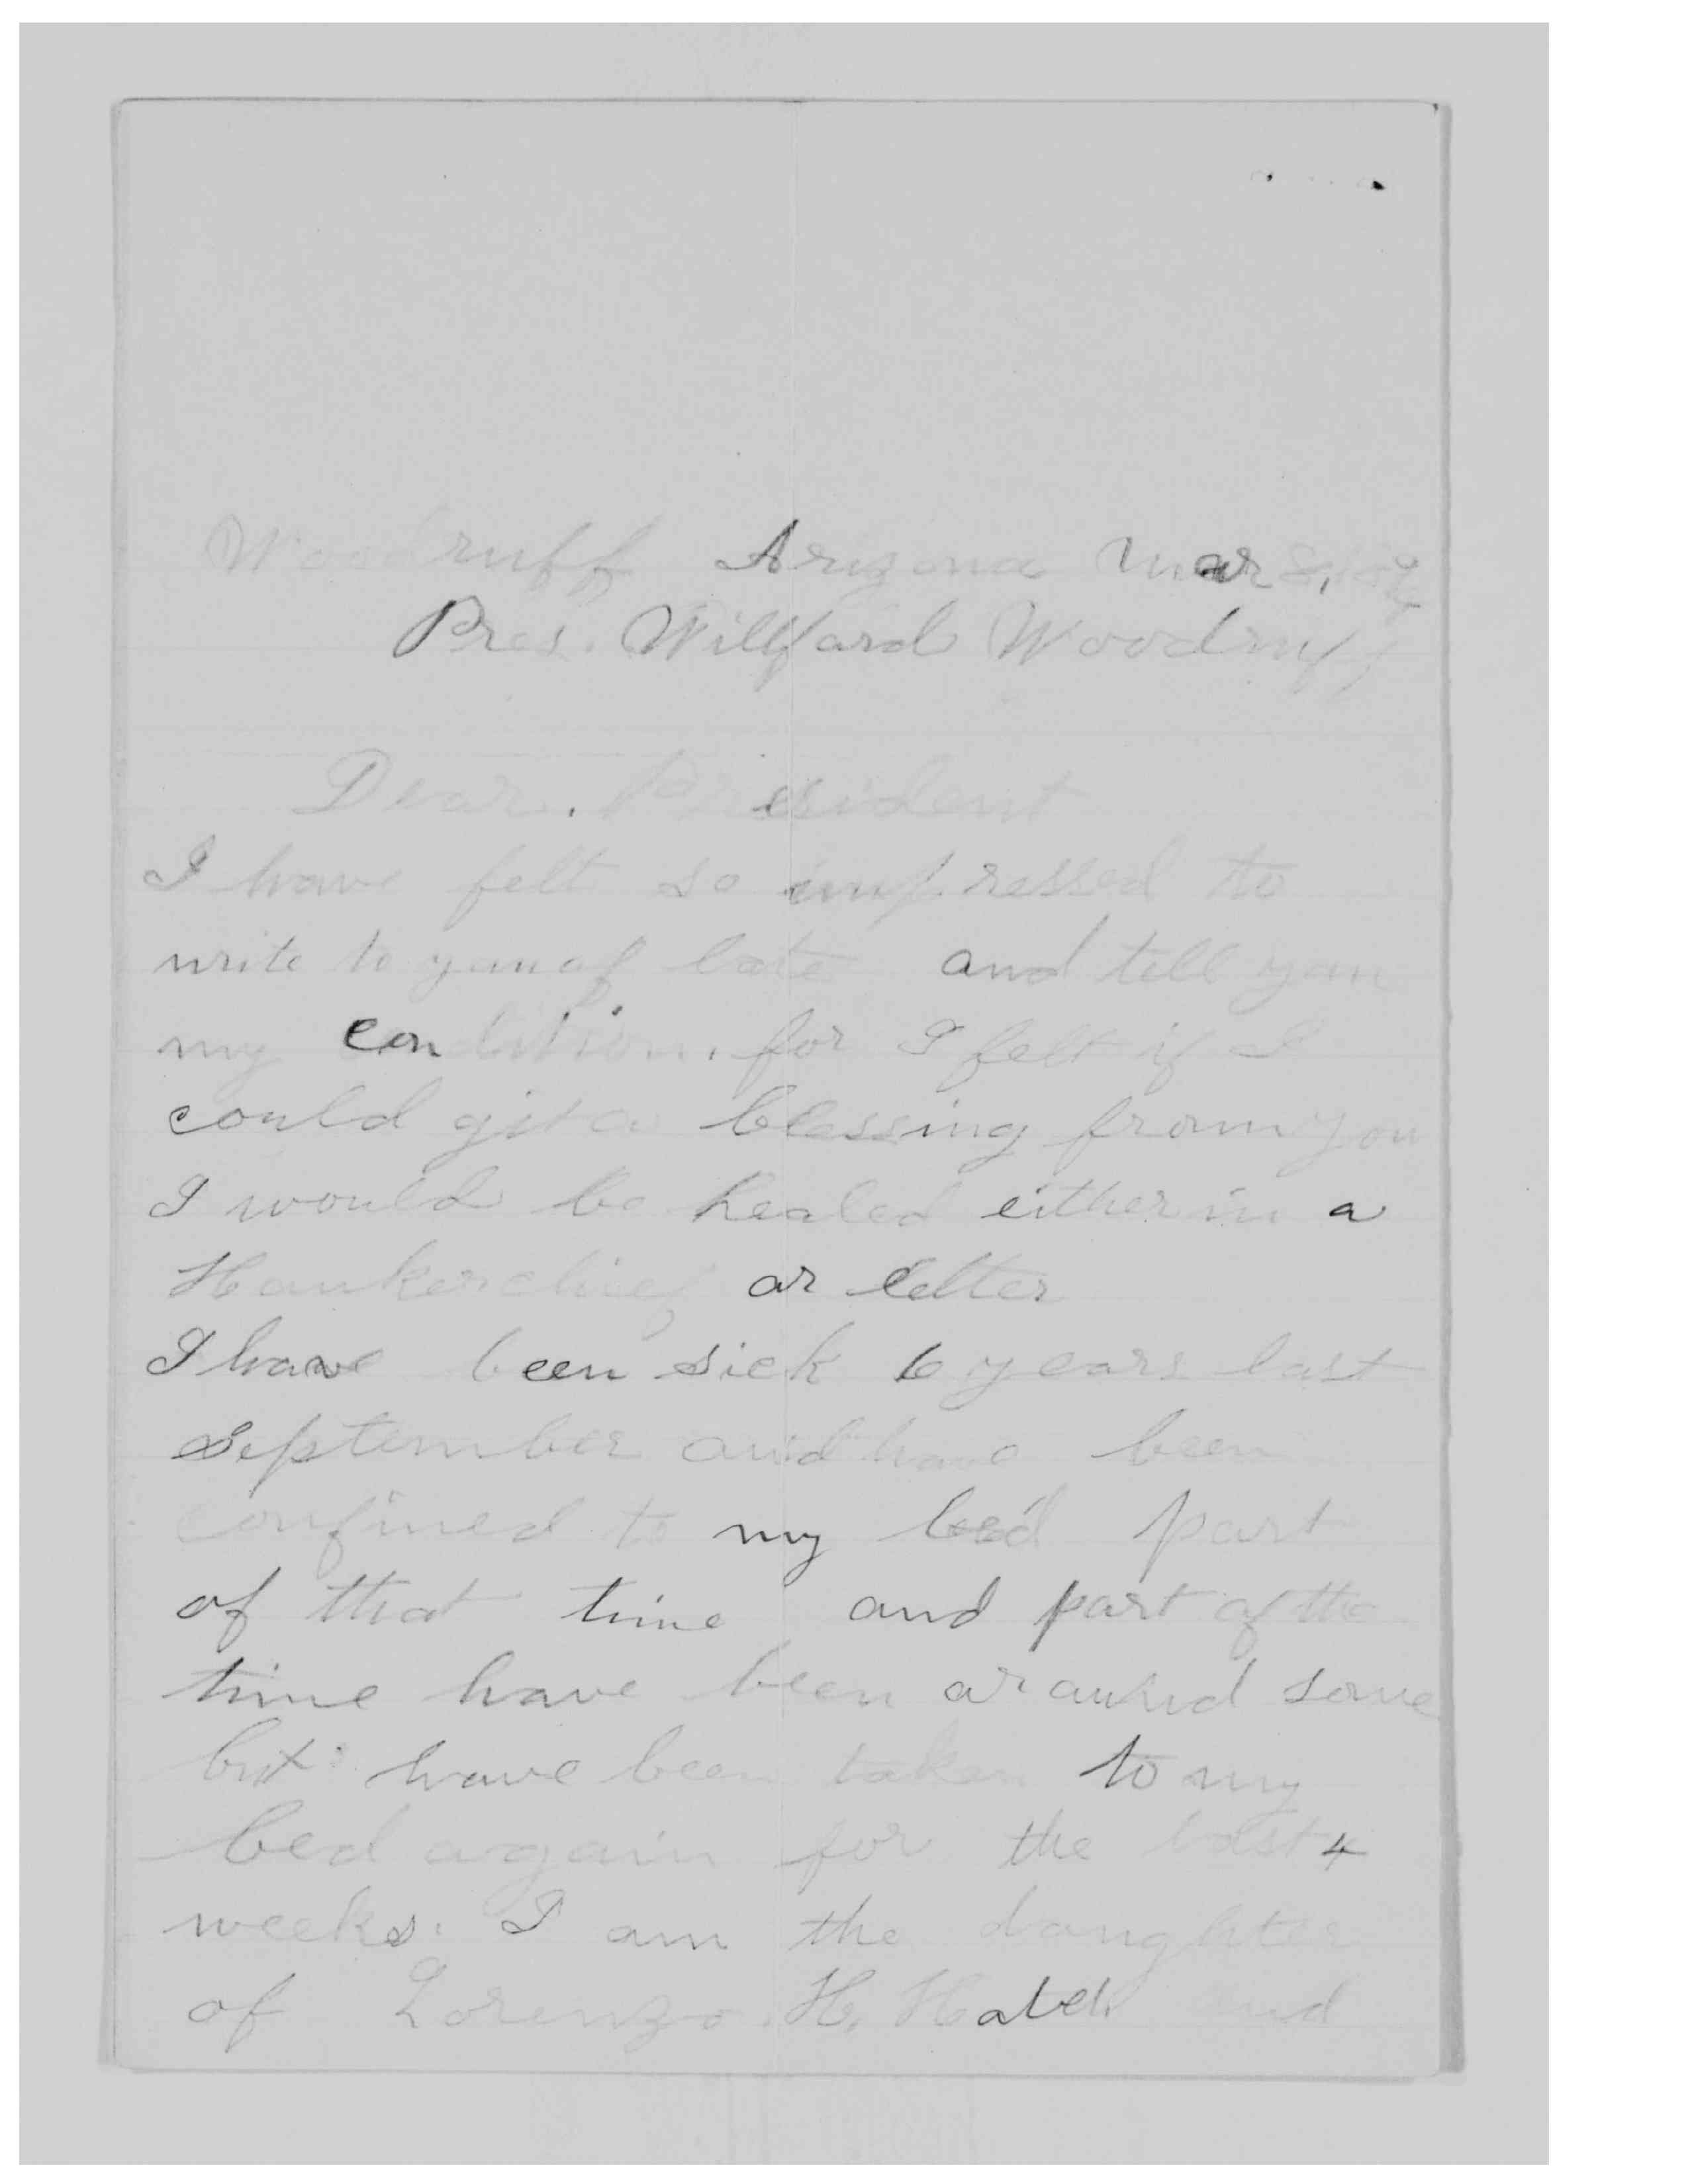 Woodruff Arizona Mar 8,
Pres. Willford Woodruff
Dear. President
I have felt so impressed to
write to you of late and tell you
my condition, for I felt if I
could git a blessing from you
I would be healed either in a
Hankerchief or letter
I have been sick 6 years last
September and have been
confined to my bed part
of that time and part of the
time have been around some
but have been taken to my
bed again for the last 4
weeks. I am the daughter
of Lorenzo H. Hatch and